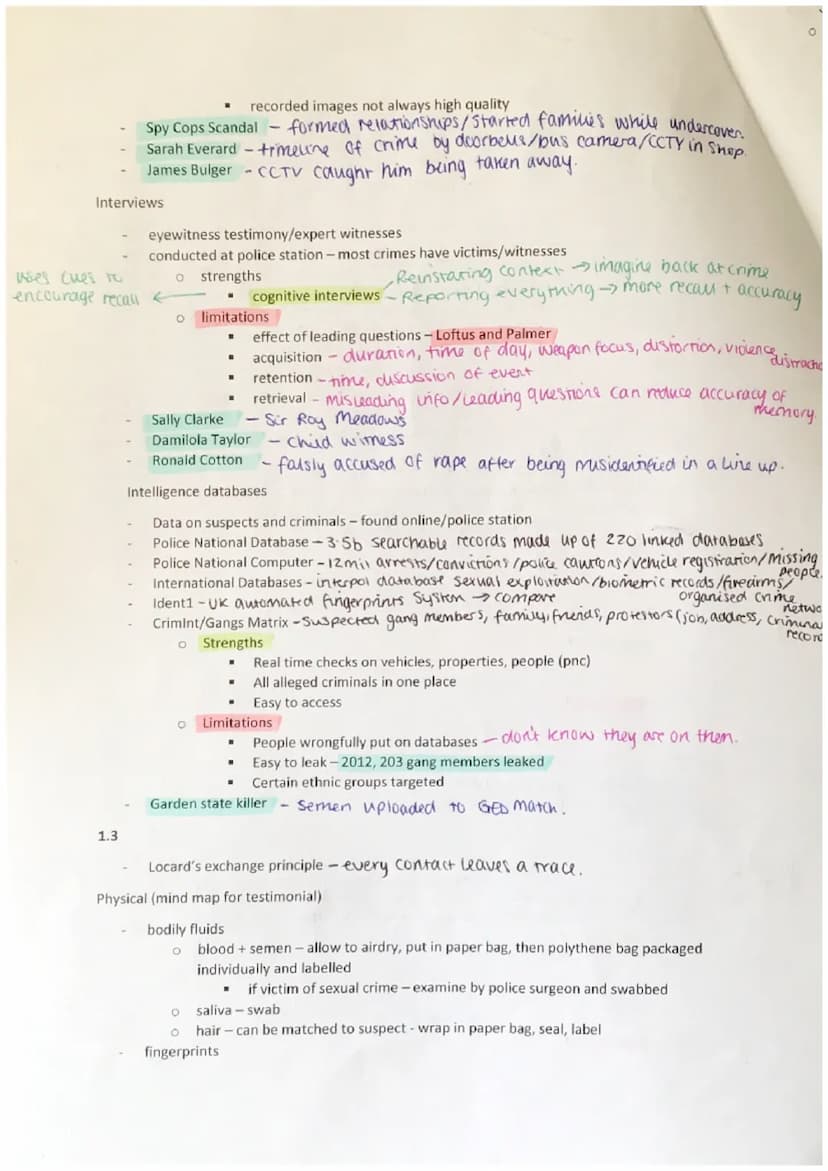 ▪ recorded images not always high quality
- Spy Cops Scandal – formed relationships/started families while undercover.
- Sarah Everard – timeline of crime by doorbells/bus camera/CCTV in shop.
- James Bulger - CCTV caught him being taken away.
Interviews
- eyewitness testimony/expert witnesses
- conducted at police station – most crimes have victims/witnesses
o strengths
Reinstating context → imagine back at crime
uses cues to
encourage recall ←
▪ cognitive interviews – Reporting everything → more recall + accuracy
o limitations
▪ effect of leading questions – Loftus and Palmer
▪ acquisition – duration, time of day, weapon focus, distortion, violence, distracti
▪ retention – time, discussion of event
▪ retrieval – misleading info/leading questions can reduce accuracy of
memory.
- Sally Clarke – Sir Roy Meadows
- Damilola Taylor – child witness
- Ronald Cotton – falsly accused of rape after being misidentified in a line up.
Intelligence databases
- Data on suspects and criminals – found online/police station
- Police National Database – 3.5b searchable records made up of 220 linked databases
- Police National Computer – 12mil arrests/convictions/police cautions/vehicle registration/missing
people.
- International Databases – interpol database sexual exploitation/biometric records/firearms/
organised crime
netwo
- Ident1 – UK automated fingerprints system → compare
- CrimInt/Gangs Matrix – suspected gang members, family, friends, protestors (job, address, crimina
record
o Strengths
▪ Real time checks on vehicles, properties, people (pnc)
▪ All alleged criminals in one place
▪ Easy to access
o Limitations
▪ People wrongfully put on databases – don't know they are on them.
▪ Easy to leak – 2012, 203 gang members leaked
▪ Certain ethnic groups targeted
- Garden state killer – Semen uploaded to GED Match.
1.3
- Locard's exchange principle – every contact leaves a trace.
Physical (mind map for testimonial)
- bodily fluids
o blood + semen – allow to airdry, put in paper bag, then polythene bag packaged
individually and labelled
▪ if victim of sexual crime – examine by police surgeon and swabbed
o saliva – swab
o hair – can be matched to suspect - wrap in paper bag, seal, label
- fingerprints